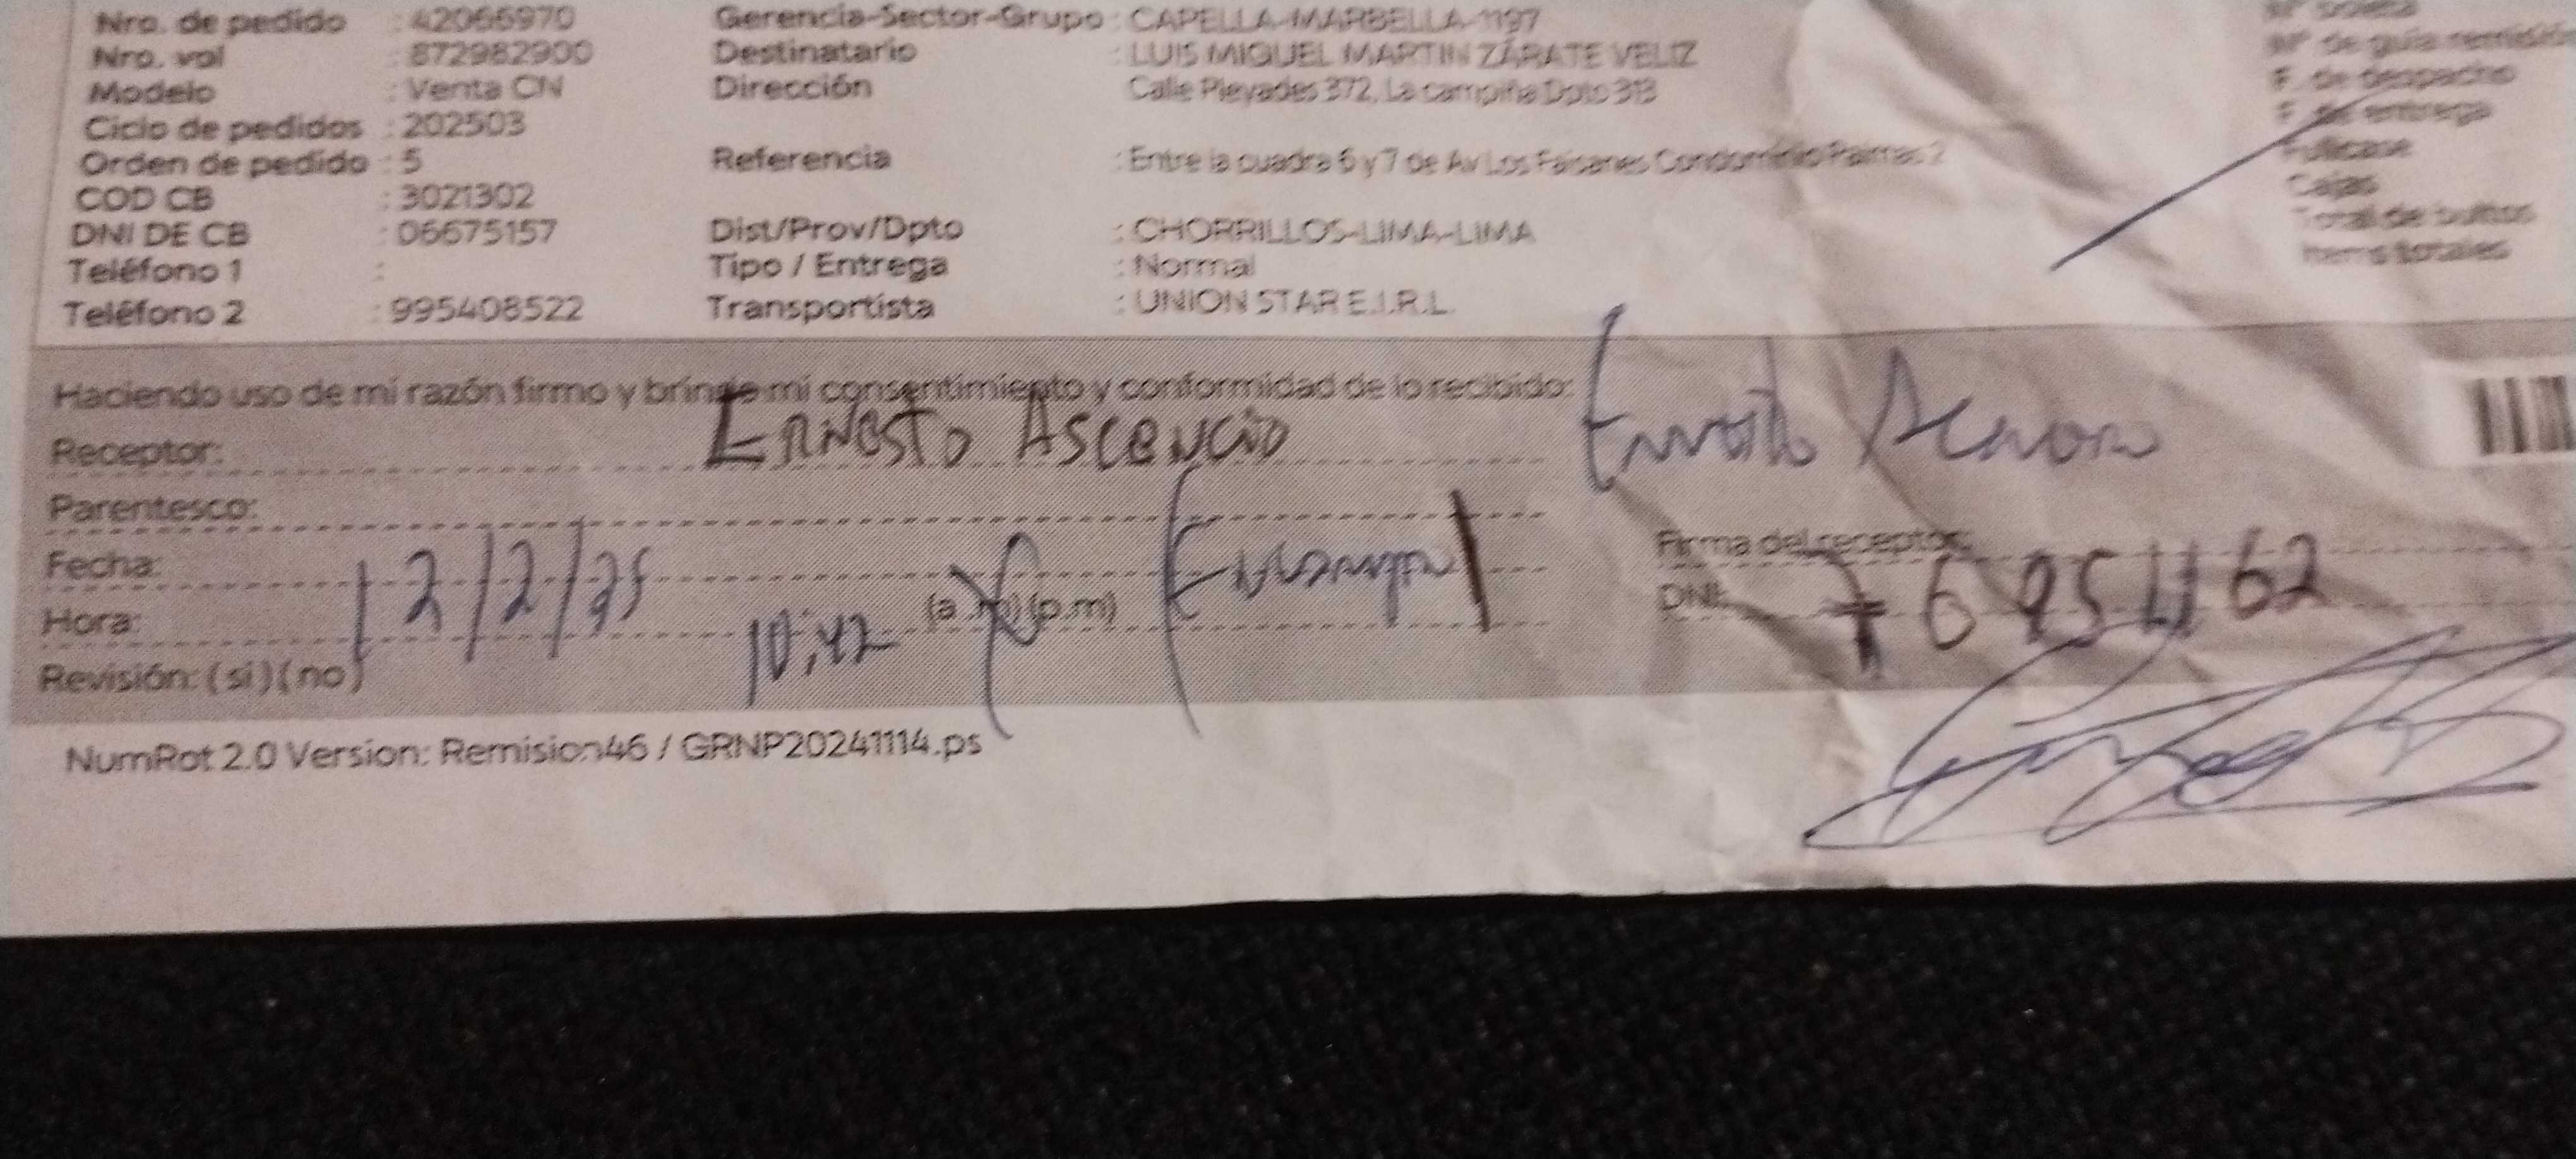 Nro. de pedido : 42066970 Gerencia-Sector-Grupo : CAPELLA-MARBELLA-1197
Nro. val : 872982900 Destinatario : LUIS MIGUEL MARTIN ZÁRATE VELIZ Nº de guía remisión
Modelo : Venta CN Dirección : Calle Pleyades 372, La campiña Dpto 313 F. de despacho
Ciclo de pedidos : 202503 F. de entrega
Orden de pedido : 5 Referencia : Entre la cuadra 6 y 7 de Av Los Faisanes Condominio Palmas 2
COD CB : 3021302 Cajas
DNI DE CB : 06675157 Dist/Prov/Dpto : CHORRILLOS-LIMA-LIMA Total de bultos
Teléfono 1 : Tipo / Entrega : Normal Items totales
Teléfono 2 : 995408522 Transportista : UNION STAR E.I.R.L.
Haciendo uso de mi razón firmo y brindo mi consentimiento y conformidad de lo recibido:
Receptor: ERNESTO ASCENCIO
Parentesco:
Fecha: 12/2/25 Firma del receptor:
Hora: 10:42 (a.m) (p.m) DNI:
Revisión: (si) (no)
NumRot 2.0 Version: Remision46 / GRNP20241114.ps